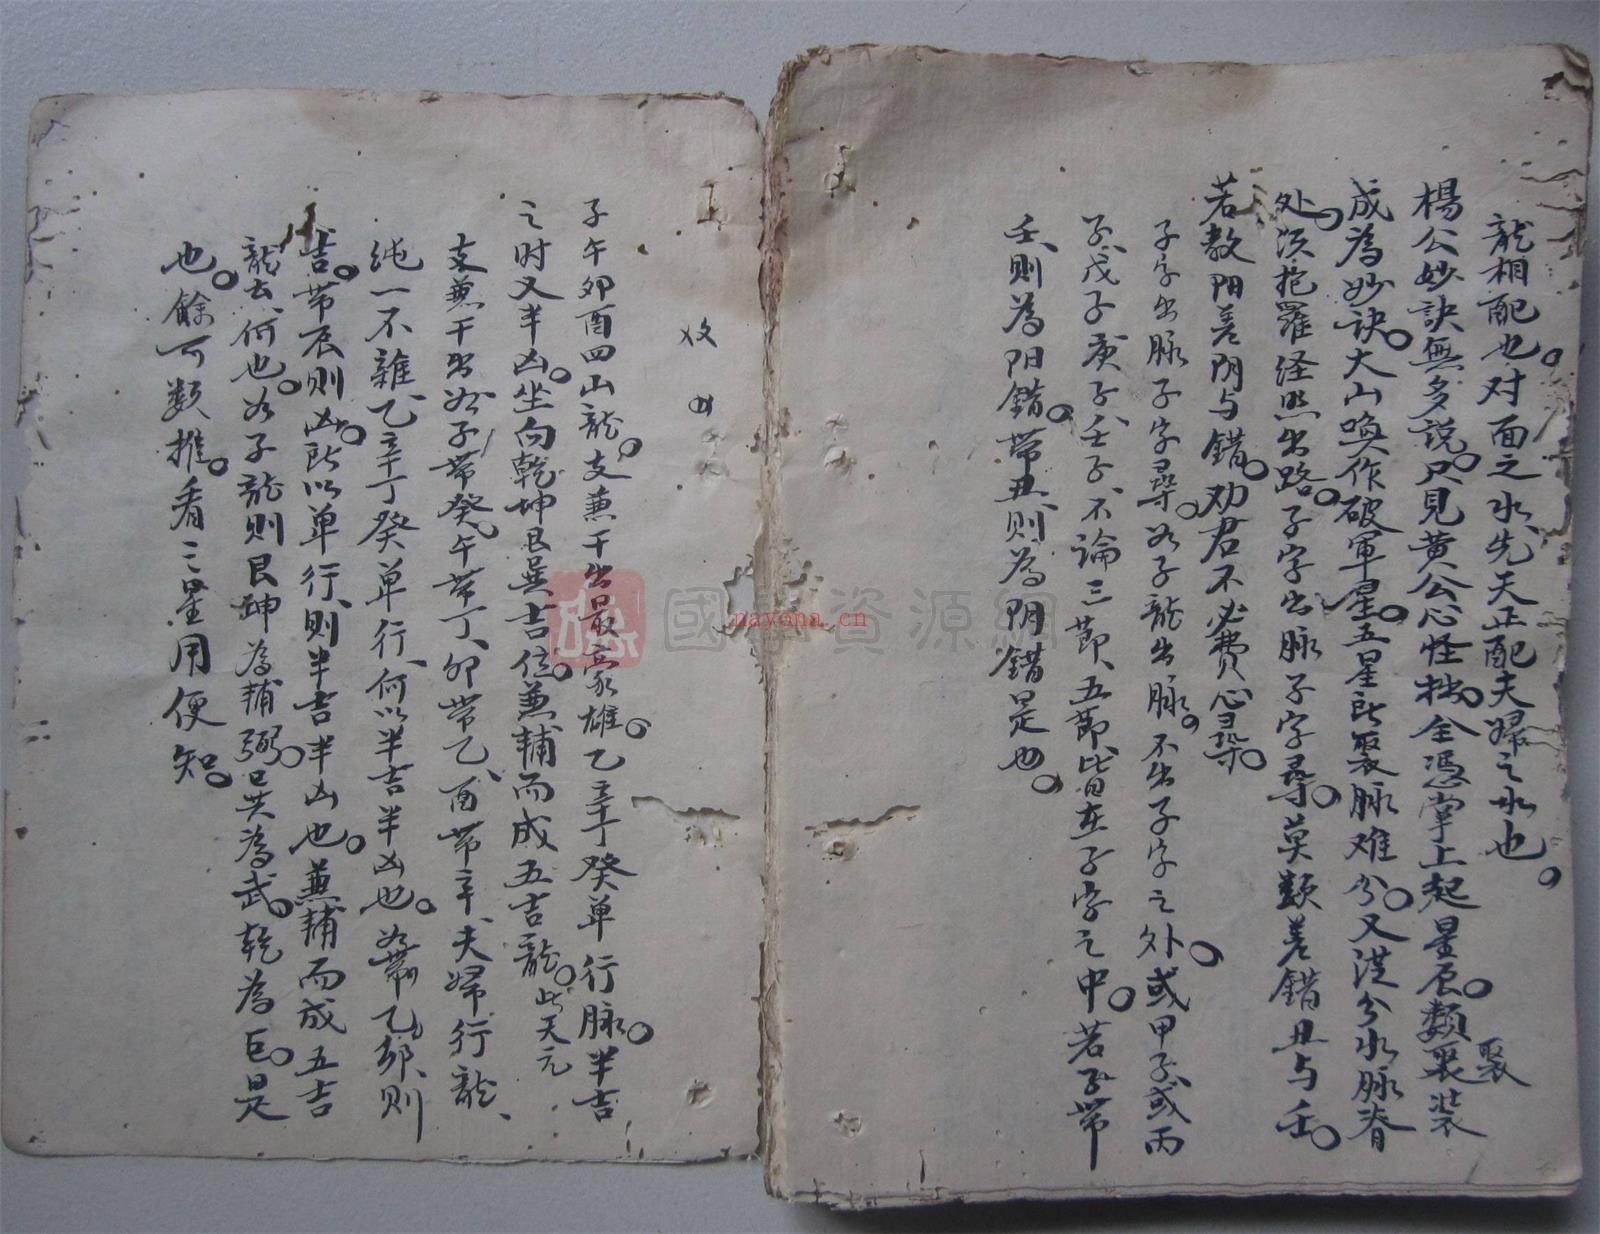 龍相配也。对面之水、先天正配夫婦之水也。
楊公妙訣無多說。只見黄公心性拙。全憑掌上起星辰。類聚装
聚
成為妙訣。大山喚作破軍星。五星所聚脉难分。又从分水脉脊
处。须把羅経照出路。子字出脉子字尋。莫類差錯丑与壬。
若教阳差阴与錯。劝君不必費心尋。
子字出脉子字尋。如子龍出脉。不出子字之外。或甲子或丙
子、戊子庚子、壬子、不論三節、五節、皆在子字之中。若子带
壬、則為阳錯。带丑、則為阴錯是也。
子午卯酉四山龍。支兼干出最豪雄。乙辛丁癸单行脉。半吉
之时又半凶。坐向乾坤艮巽吉位。兼輔而成五吉龍。此天元
支兼干出如子带癸。午带丁、卯带乙、酉带辛、夫婦行龍、
纯一不雜、乙辛丁癸单行、何以半吉半凶也。如带乙卯、則
吉。带辰則凶。所以单行、則半吉半凶也。兼輔而成五吉
龍去、何也。如子龍則艮坤為輔弼。巳共為武。乾為巨。是
也。餘可類推。看三星用便知。
國學資源網
nayona.cn